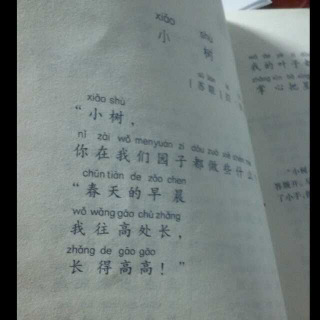 xiǎo shù
小 树
(苏联)
xiǎo shù
“小树，
nǐ zài wǒ menyuán zi dōu zuò xiē shén
你在我们园子都做些什么
chūn tiān de zǎo chen
“春天的早晨
wǒ wǎng gāo chù zhǎng
我往高处长，
zhǎng de gāo gāo
长得高高！”
我的叶子
掌心把
“小树